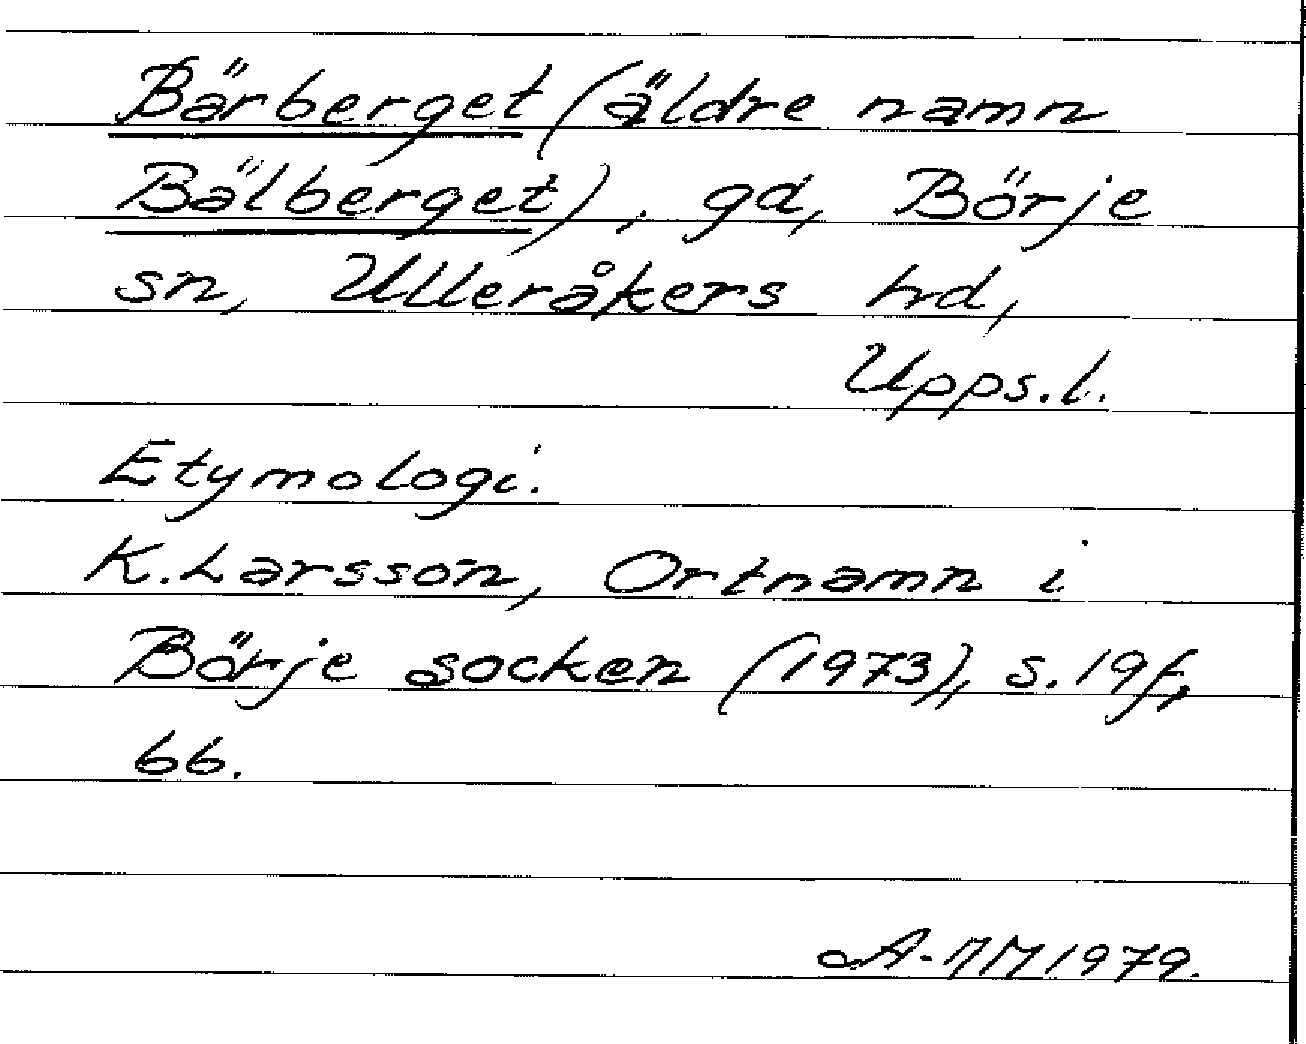 Bärberget (äldre namn
Bälberget), gd, Börje
sn, Ulleråkers hd,
Upps.l.
Etymologi.
K. Larsson, Ortnamn i
Börje socken (1973), s. 19f,
66.
A-MM 1979.